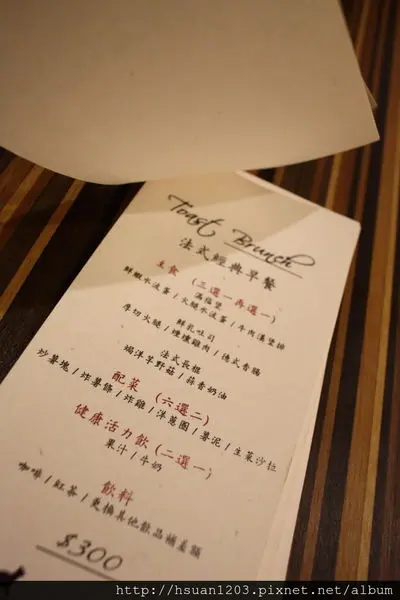 Toast Brunch
法式經典早餐
主食 (三選一再選一)
滿福堡
鮮蝦水波蛋/火腿水波蛋/牛肉漢堡排
鮮乳吐司
厚切火腿/燻雞肉/德式香腸
法式長棍
焗洋芋野菇/蒜香奶油
配菜 (六選二)
炒薯塊/炸薯條/炸雞/洋蔥圈/薯泥/生菜沙拉
健康活力飲 (二選一)
果汁/牛奶
飲料
咖啡/紅茶/更換其他飲品補差額
$300
http://hsuan1203.pixnet.net/album